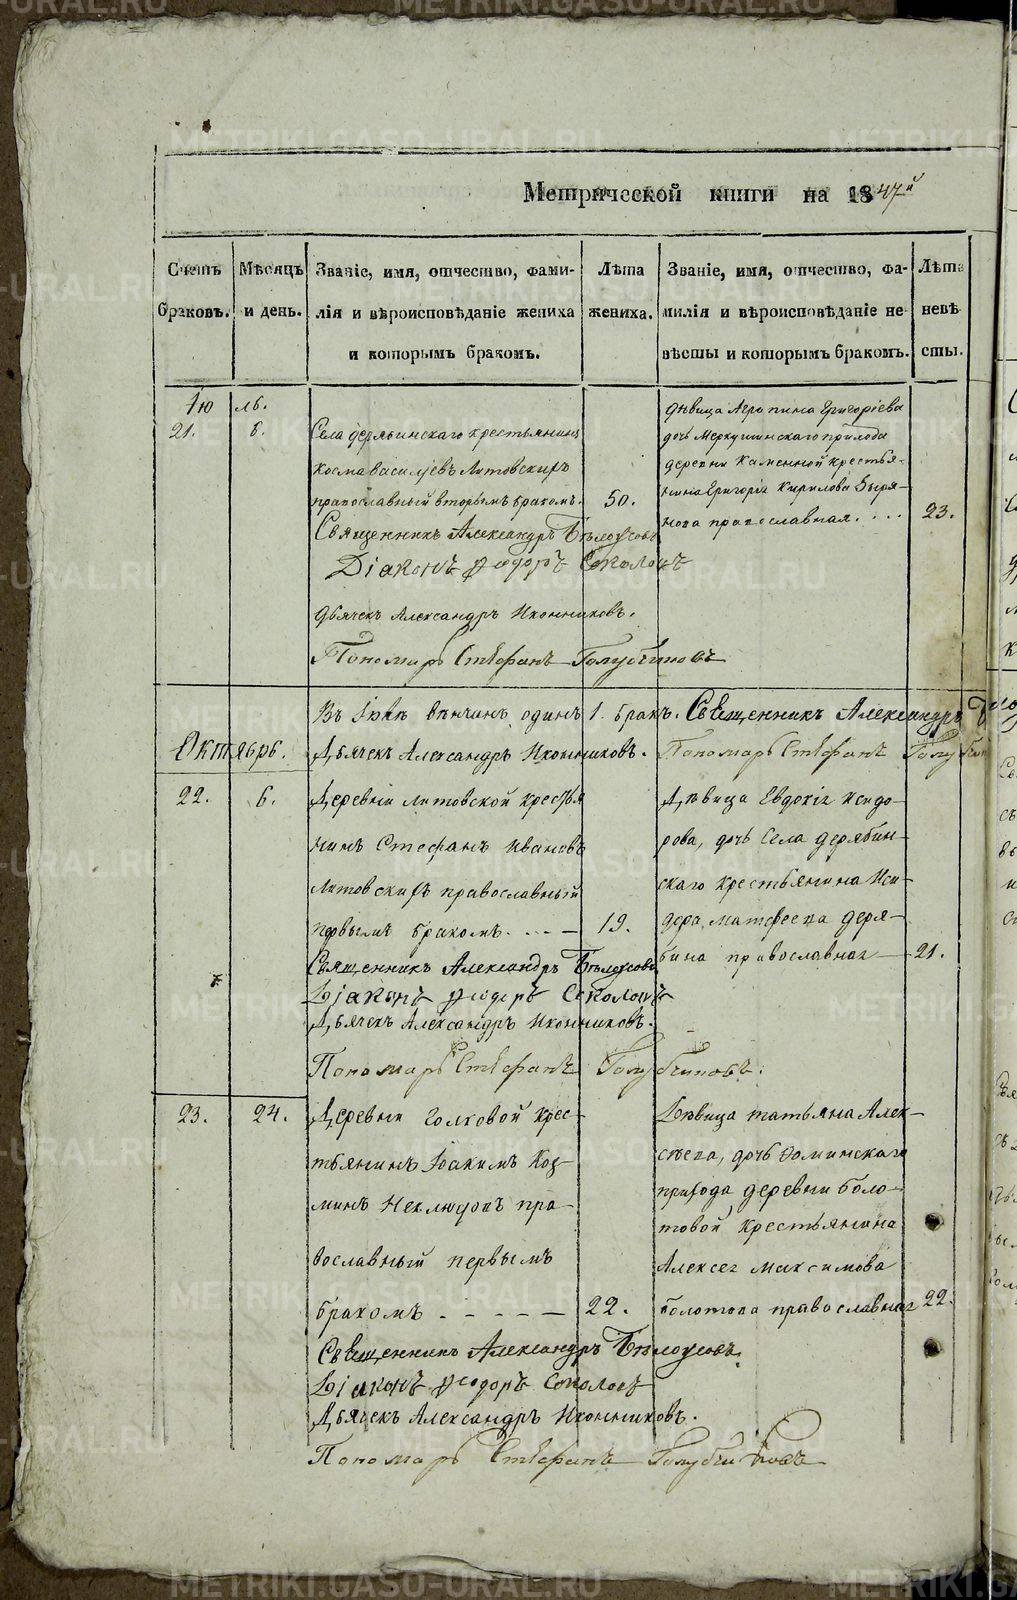 Метрической книги на 1847й
Счетъ браковъ.
Мѣсяцъ и день.
Званіе, имя, отчество, фами-
лія и вѣроисповѣданіе жениха
и которымъ бракомъ.
Лѣта жениха.
Званіе, имя, отчество, фа-
милія и вѣроисповѣданіе не-
вѣсты и которымъ бракомъ.
Лѣта невѣ-
сты.
Іюль.
21.
6.
Села Дерябинскаго крестьянинъ
Косма Васильевъ Литовскихъ
православный вторымъ бракомъ.
50.
Дѣвица Агропина Григоріева
дочь Меркушинскаго прихода
деревни Каменной крестья-
нина Григорія Кирилова Быря-
нова православная. . . .
23.
Священникъ Александръ Бѣлоусовъ
Діаконъ Ѳеодоръ Соколовъ
Дьячекъ Александръ Иконниковъ.
Пономарь Стефанъ Голубчиковъ
Въ Іюлѣ вѣнчанъ одинъ 1. бракъ. Священникъ Александръ
Дьячекъ Александръ Иконниковъ. Пономарь Стефанъ
Октябрь.
22.
6.
Деревни Литовской крестья
нинъ Стефанъ Ивановъ
Литовскихъ православный
первымъ бракомъ. . . —
19.
Дѣвица Евдокія Исидо-
рова, дочь Села Дерябин-
скаго крестьянина Иси-
дора Матфеева Деря-
бина православная —
21.
Священникъ Александръ Бѣлоусовъ
Діаконъ Ѳеодоръ Соколовъ
Дьячекъ Александръ Иконниковъ.
Пономарь Стефанъ Голубчиковъ.
23.
24.
Деревни Голковой крес-
тьянинъ Іоакимъ Коз-
минъ Неклюдовъ пра-
вославный первымъ
бракомъ . - - - —
22.
Дѣвица Татьяна Алек-
сѣева, дочь Фоминскаго
прихода деревни Боло-
товой крестьянина
Алексея Максимова
Болотова православная
22.
Священникъ Александръ Бѣлоусовъ.
Діаконъ Ѳеодоръ Соколовъ
Дьячекъ Александръ Иконниковъ.
Пономарь Стефанъ Голубчиковъ
METRIKI.GASO-URAL.RU